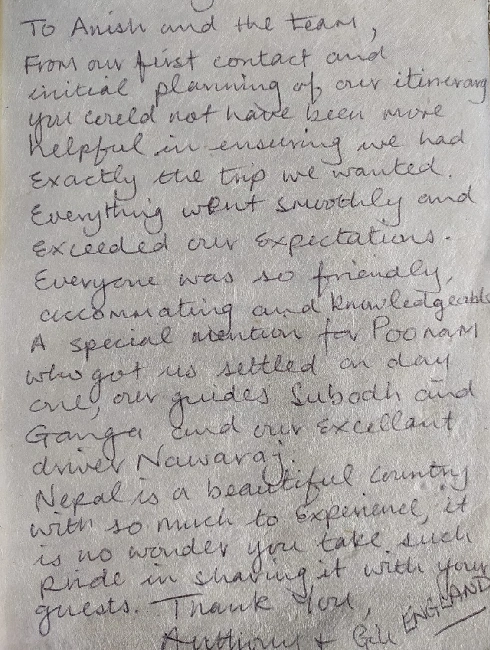 To Anish and the team,
From our first contact and
initial planning of our itinerary
you could not have been more
helpful in ensuring we had
exactly the trip we wanted.
Everything went smoothly and
exceeded our expectations.
Everyone was so friendly,
accommating and knowledgeable
A special mention for Poonam
who got us settled on day
one, our guides Subodh and
Ganga and our excellant
driver Nawaraj.
Nepal is a beautiful country
with so much to experience, it
is no wonder you take such
pride in sharing it with your
guests. Thank You,
Anthony + ENGLAND